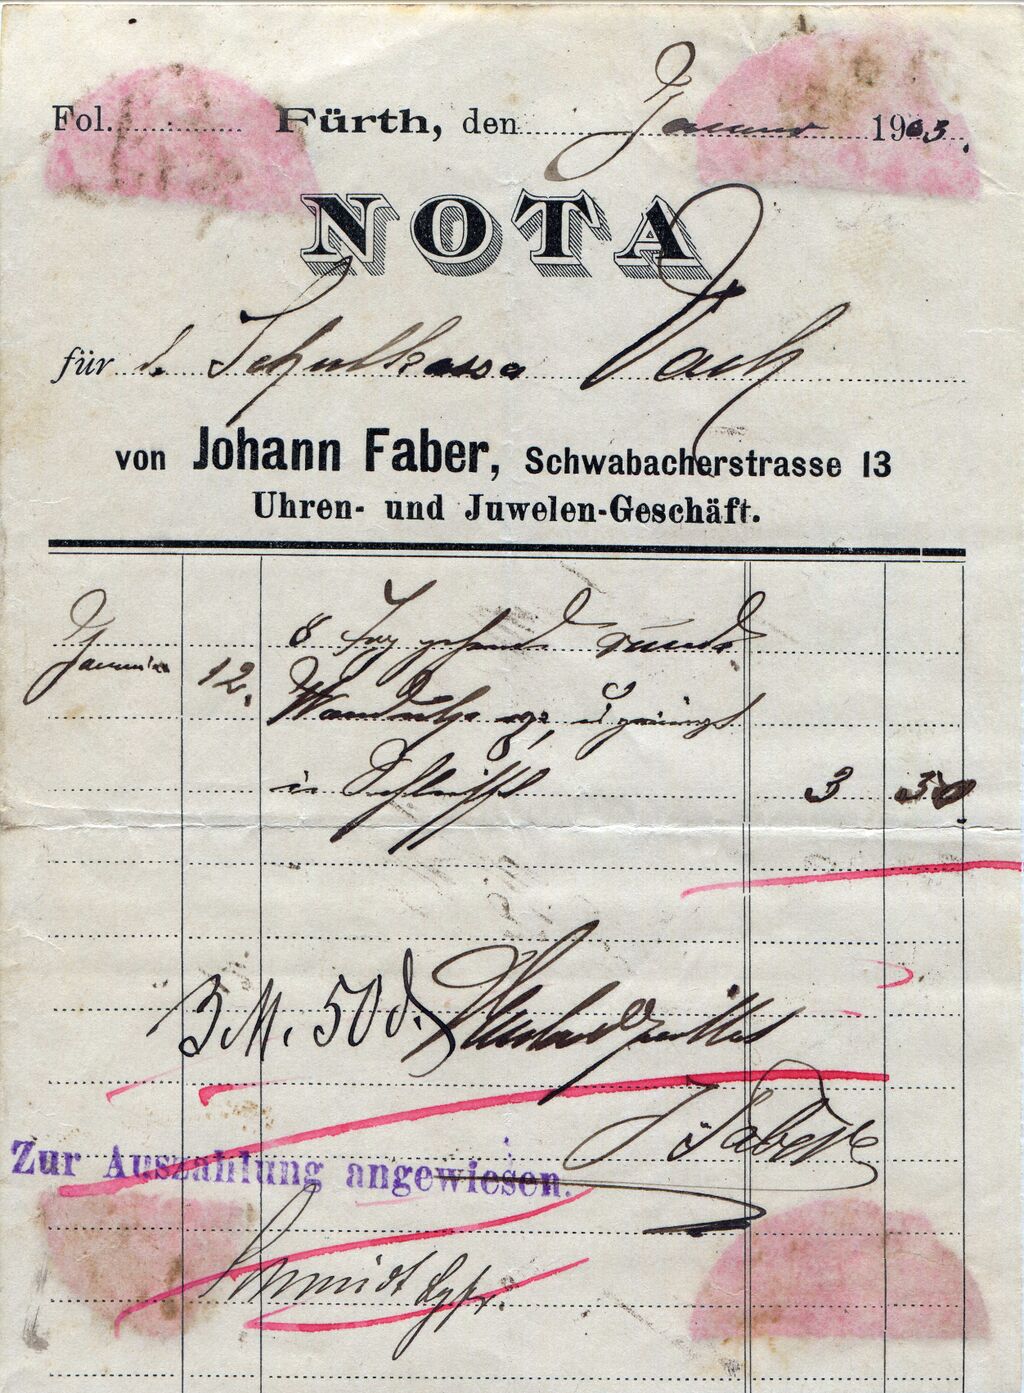 Fol. Fürth, den Januar 1903.
NOTA
für d. Schulkassa Vach
von Johann Faber, Schwabacherstrasse 13
Uhren- und Juwelen-Geschäft.
8 Tag gehend runde
Januar 12.
3 50.
3 M. 50 d.
J Faber
Zur Auszahlung angewiesen.
Schmidt